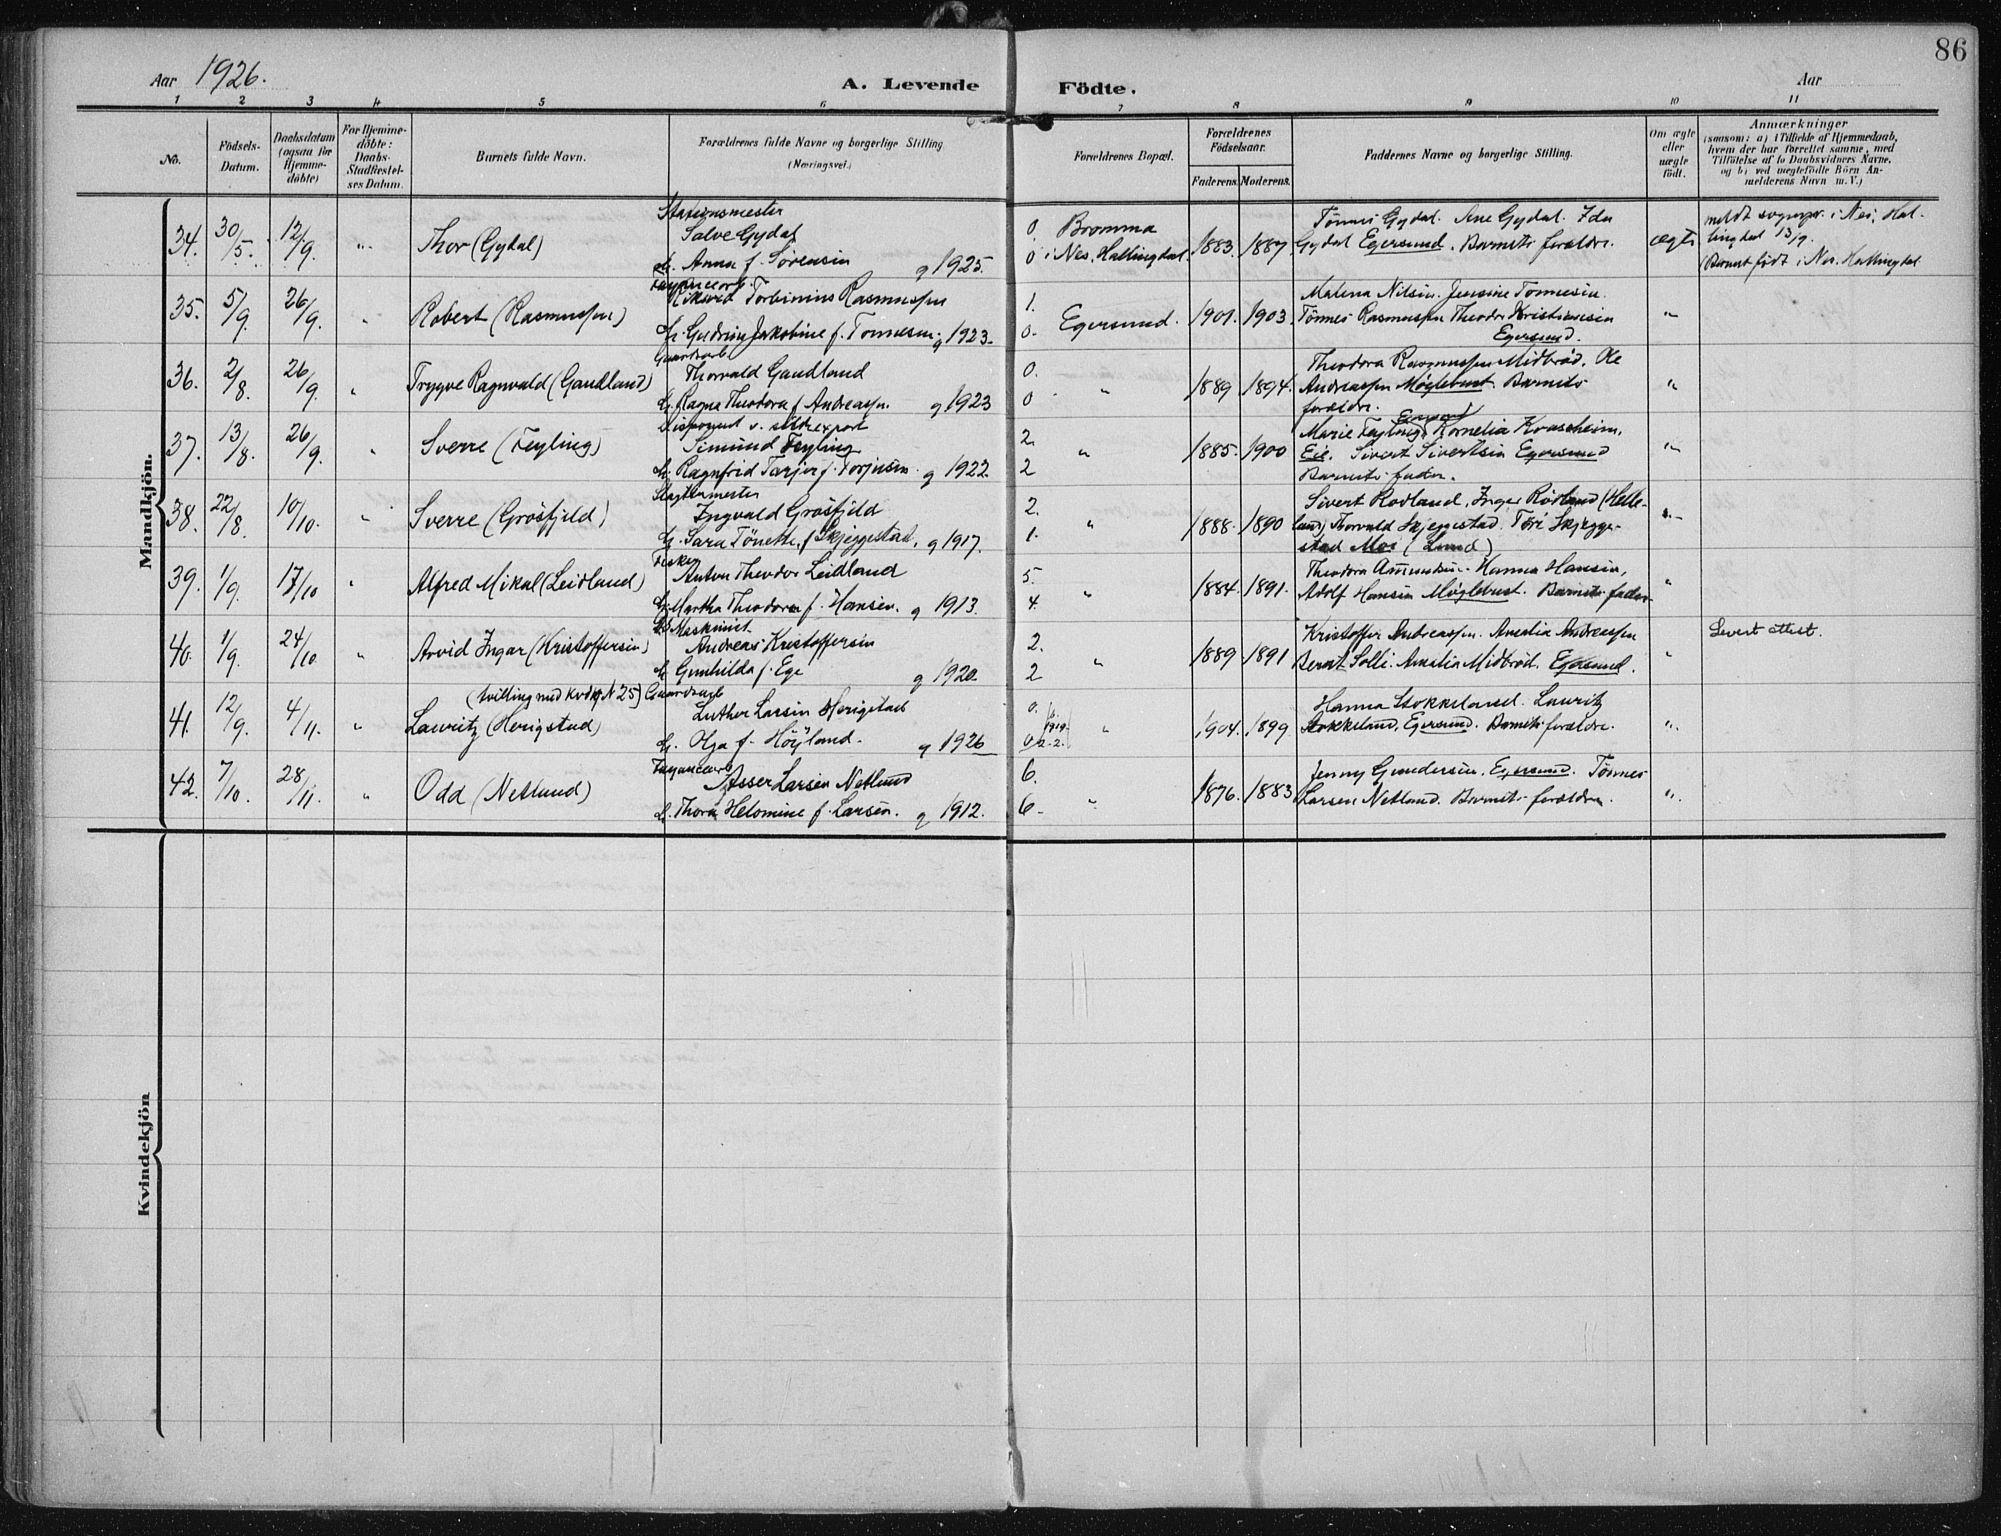 86
Aar 1926.
A. Levende Födte.
Aar
1 2 3 4 5 6 7 8 9 10 11
No.
Födsels-
Datum.
Daabsdatum
(ogsaa for
Hjemme-
döbte)
For Hjemme-
döbte:
Daabs-
Stadfæstel-
ses Datum.
Barnets fulde Navn.
Forældrenes fulde Navne og borgerlige Stilling
(Næringsvei.)
Forældrenes Bopæl.
Forældrenes
Födselsaar.
Faderens. Moderens.
Faddernes Navne og borgerlige Stilling.
Om ægte
eller
uægte
født.
Anmærkninger
(saasom: a) i Tilfælde af Hjemmedaab,
hvem der har forrettet samme, med
Tilföielse af to Daabsvidners Navne,
og b) ved uægtefödte Börn An-
melderens Navn m. V.)
Mandkjön.
34. 30/5. 12/9. " Thor (Gydal)
Stationsmester
Salve Gydal
h. Anna f. Sørensen g 1925.
0. 0
Bromma
i Nes, Hallingdal
1883. 1887
Tønnes Gydal. Ane Gydal. Ida
Gydal Egersund. Barnets forældre.
ægte
meldt sognepr. i Nes, Hal-
lingdal 13/9.
Barnet født i Nes. Hallingdal
35. 5/9. 26/9. " Robert (Rasmussen)
Fayancearb.
Rikard Torbinius Rasmussen
h. Gudrun Jakobine f. Tønnesen g 1923.
1. 0.
Egersund.
1901. 1903.
Malena Nilsen. Jensine Tønnesen.
Tønnes Rasmussen Theodor Kristiansen
Egersund.
"
36. 2/8. 26/9. " Trygve Ragnvald (Gaudland)
Guanoarb.
Thorvald Gaudland
h. Ragna Theodora f Andreassen. g 1923
0. 0
"
1889 1894.
Theodora Rasmussen Midbrød, Ole
Andreassen Møglebust. Barnets
forældre.
"
37. 13/8. 26/9. Sverre (Feyling)
Disponent v. sildexport
Simund Feyling
h. Ragnfrid Tarjer f. Torjusen. g 1922.
2. 2
"
1885. 1900
Egersund
Marie Feyling. Kornelia Kvasheim,
Eie. Sivert Sivertsen Egersund
Barnets fader.
"
38. 22/8. 10/10. " Sverre (Grøsfjeld)
Slagtermester
Ingvald Grøsfjeld
h. Sara Tønette, f Skjeggestad, g 1917.
2. 1.
"
1888. 1890
Sivert Rødland, Inger Rødland (Helle-
land) Thorvald Skjeggestad. Tori Skjegge-
stad Moi (Lund)
"
39. 1/9. 17/10 " Alfred Mikal (Leidland)
Fisker
Anton Theodor Leidland
h. Martha Theodora f. Hansen. g 1913.
5. 4.
"
1884. 1891.
Theodora Amundsen. Hanna Hansen,
Adolf Hansen Møglebust. Barnets fader
"
40. 1/9. 24/10. " Arvid Ingar (Kristoffersen)
Maskinist
Andreas Kristoffersen
h Gunhilda f. Ege g 1920.
2. 2
"
1889 1891
Kristoffer Andreassen. Amalia Andreassen
Bernt Solli. Amalia Midbrød. Egersund.
"
Levert attest.
41. 12/9. 4/11. " (tvilling med kvkj. N 25)
Lauritz (Herigstad)
Guanoarb
Luther Larsen Herigstad
h. Olga f. Höyland. g 1926
0. 0
"
1904. 1899
Hanna Stokkeland. Lauritz
Stokkeland, Egersund. Barnets forældre.
"
42. 7/10. 28/11. " Odd (Netland)
Fayancearb
Asser Larsen Netland
h. Thora Helomine f. Larsen. g 1912.
6. 6.
"
1876. 1883
Jenny Gundersen, Egersund. Tønnes
Larsen Netland. Barnets forældre.
"
Kvindekjön